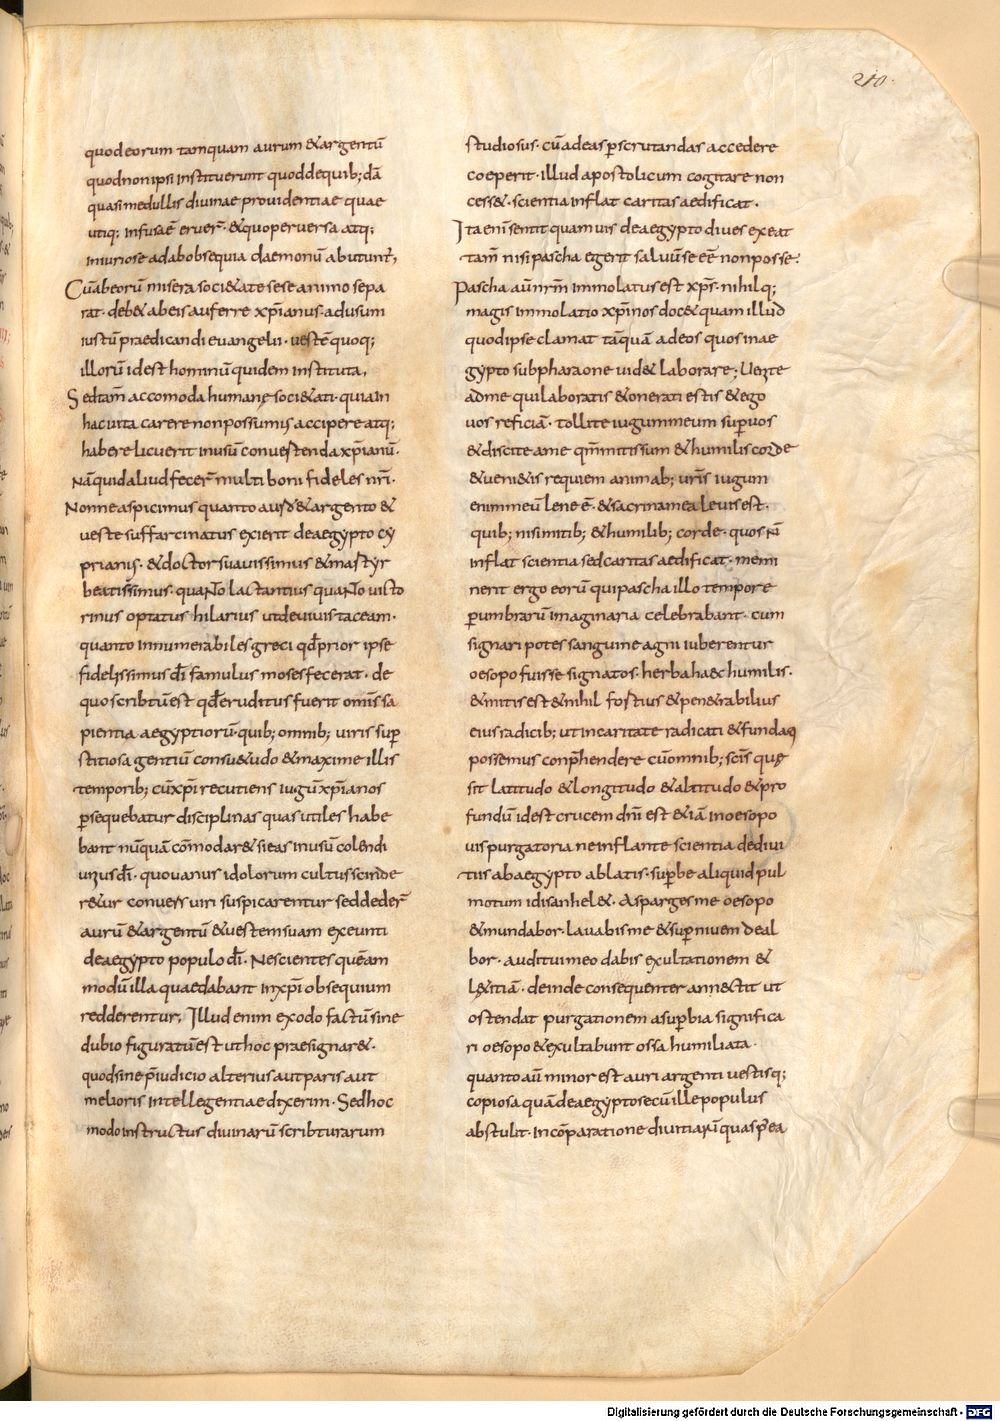 210.
quod eorum tamquam aurum & argentū
quod non ipsi instituerunt quod de quib; dā
quasi medullis divinae providentiae quae
utiq; infusaē eruer̄. & quo perverse atq;
iniuriose ad ab obsequia daemonū abutunt̄,
Cū ab eorū misera soci&ate sese animo sepa
rat. deb& ab eis auferre xp̄ianus. ad usum
iustū praedicandi evangelii. vestē quoq;
illorū id est hominū quidem instituta,
Sed tam̄ accomoda humanę soci&ati. quia in
hac vita carere non possumis accipere atq;
habere licuerit in usū convertenda xp̄ianū.
Nā quid aliud fecer̄ multi boni fideles nr̄i.
Nonne aspicimus quanto auro & argento &
veste suffarcinatus exierit de aegypto cy
prianus. & doctor suavissimus & martyr
beatissimus. quanto lactantius quanto victo
rinus optatus hilarius ut de vivis taceam.
quanto innumerabiles greci qđ prior ipse
fidelissimus dī famulus moses fecerat. de
quo scribtū est qđ eruditus fuerit omīs sa
pientia aegyptiorū. quib; omnib; viris sup̄
stitiosa gentiū consu&udo & maxime illis
temporib; cū xp̄i recutiens iugū xp̄ianos
p̄sequebatur disciplinas quas utiles habe
bant nūquā cōmodar& si eas in usū colendi
unius dī. quo vanus idolorum cultus scinde
r&ur conversi viri suspicarentur sed deder̄
aurū & argentū & vestem suam exeunti
de aegypto populo dī. Nescientes quēam
modū illa quae dabant in xp̄i obsequium
redderentur, Illud enim exodo factū sine
dubio figuratū est ut hoc praesignar&.
quod sine p̄iudicio alterius aut paris aut
melioris intellegentiae dixerim. Sed hoc
modo instructus divinarū scribturarum
studiosus. cū ad eas p̄scrutandas accedere
coeperit. illud apostolicum cogitare non
cess&. scientia inflat caritas aedificat.
Ita enī sentit quamvis de aegypto dives exeat
tam̄ nisi pascha egerit salvū se eē non posse.
Pascha aū nr̄m immolatus est xp̄s. nihilq;
magis immolatio xp̄i nos doc& quam illud
quod ipse clamat tāquā ad eos quos in ae
gypto sub pharaone vid& laborare; Venite
ad me qui laboratis & onerati estis & ego
vos reficiā. tollite iugum meum sup̄ vos
& discite a me qm̄ mitis sum & humilis corde
& veni&is requiem animab; ur̄is iugum
enim meū lene ē. & sacrina mea levis est.
quib; nisi mitib; & humilib; corde. quos n̄
inflat scientia sed caritas aedificat. memi
nerit ergo eorū qui pascha illo tempore
p̄ umbrarū imaginaria celebrabant. cum
signari potes sanguine agni iuberentur
oesopo fuisse signatos. herba haec humilis.
& mitis est & nihil fortius & pen&rabilius
eius radicib; ut in caritate radicati & fundati
possemus conp̄hendere cū omnib; scīs quę
sit latitudo & longitudo & altitudo & pro
fundū id est crucem dn̄i est & iā in oesopo
vis purgatoria ne inflante scientia de divi
tiis ab aegypto ablatis. sup̄be aliquid pul
motum id is anhel&. Asparges me oesopo
& mundabor. lavabis me & sup̄ nivem deal
bor. auditui meo dabis exultationem &
l&itiā. deinde consequenter ann&tit ut
ostendat purgationem a sup̄bia significa
ri oesopo & exultabunt ossa humiliata.
quanto aū minor est auri argenti vestisq;
copiosa quā de aegypto secū ille populus
abstulit. in cōparatione divitiarū quas p̄ea
Digitalisierung gefördert durch die Deutsche Forschungsgemeinschaft - DFG